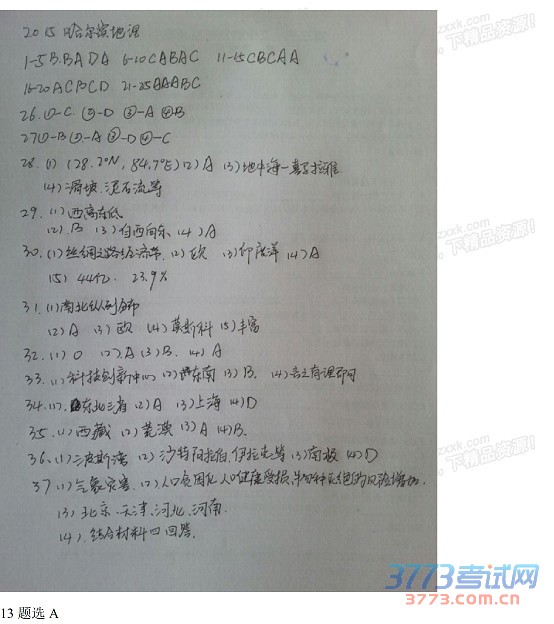 2015 哈尔滨地理
1-5 B.BADA 6-10 CABAC 11-15 CBCAA
16-20 ACBCD 21-25 AAABC
26.①-C. ②-D ③-A ④B
27①-B ②-A ③-D ④-C
28. (1) (28.2°N, 84.7°E) (2) A (3) 地中海-喜马拉雅
(4) 滑坡.泥石流等
29. (1) 西高东低
(2). B (3) 自西向东 (4) A
30. (1) 丝绸之路经济带. (2) 欧 (3) 印度洋 (4) A
(5) 44亿. 23.9%
31. (1) 南北纵列分布
(2) A (3) 欧 (4) 莫斯科 (5) 丰富
32. (1) 0 (2). A (3) B. (4) A
33. (1) 科技创新中心 (2) 东南 (3) B. (4) 言之有理即可
34. (1). 东北三省 (2) A (3) 上海 (4) D
35. (1) 西藏 (2) 荒漠 (3) A (4) B.
36. (1) 波斯湾 (2) 沙特阿拉伯.伊拉克等 (3) 南极 (4) D
37 (1) 气象灾害. (2) 人口贫困化,人口健康受损,物种灭绝的风险增加.
(3) 北京.天津.河北.河南.
(4). 结合材料四回答.
13 题选 A
3773考试网
3773.com.cn
下精品资源.
zxxk.com